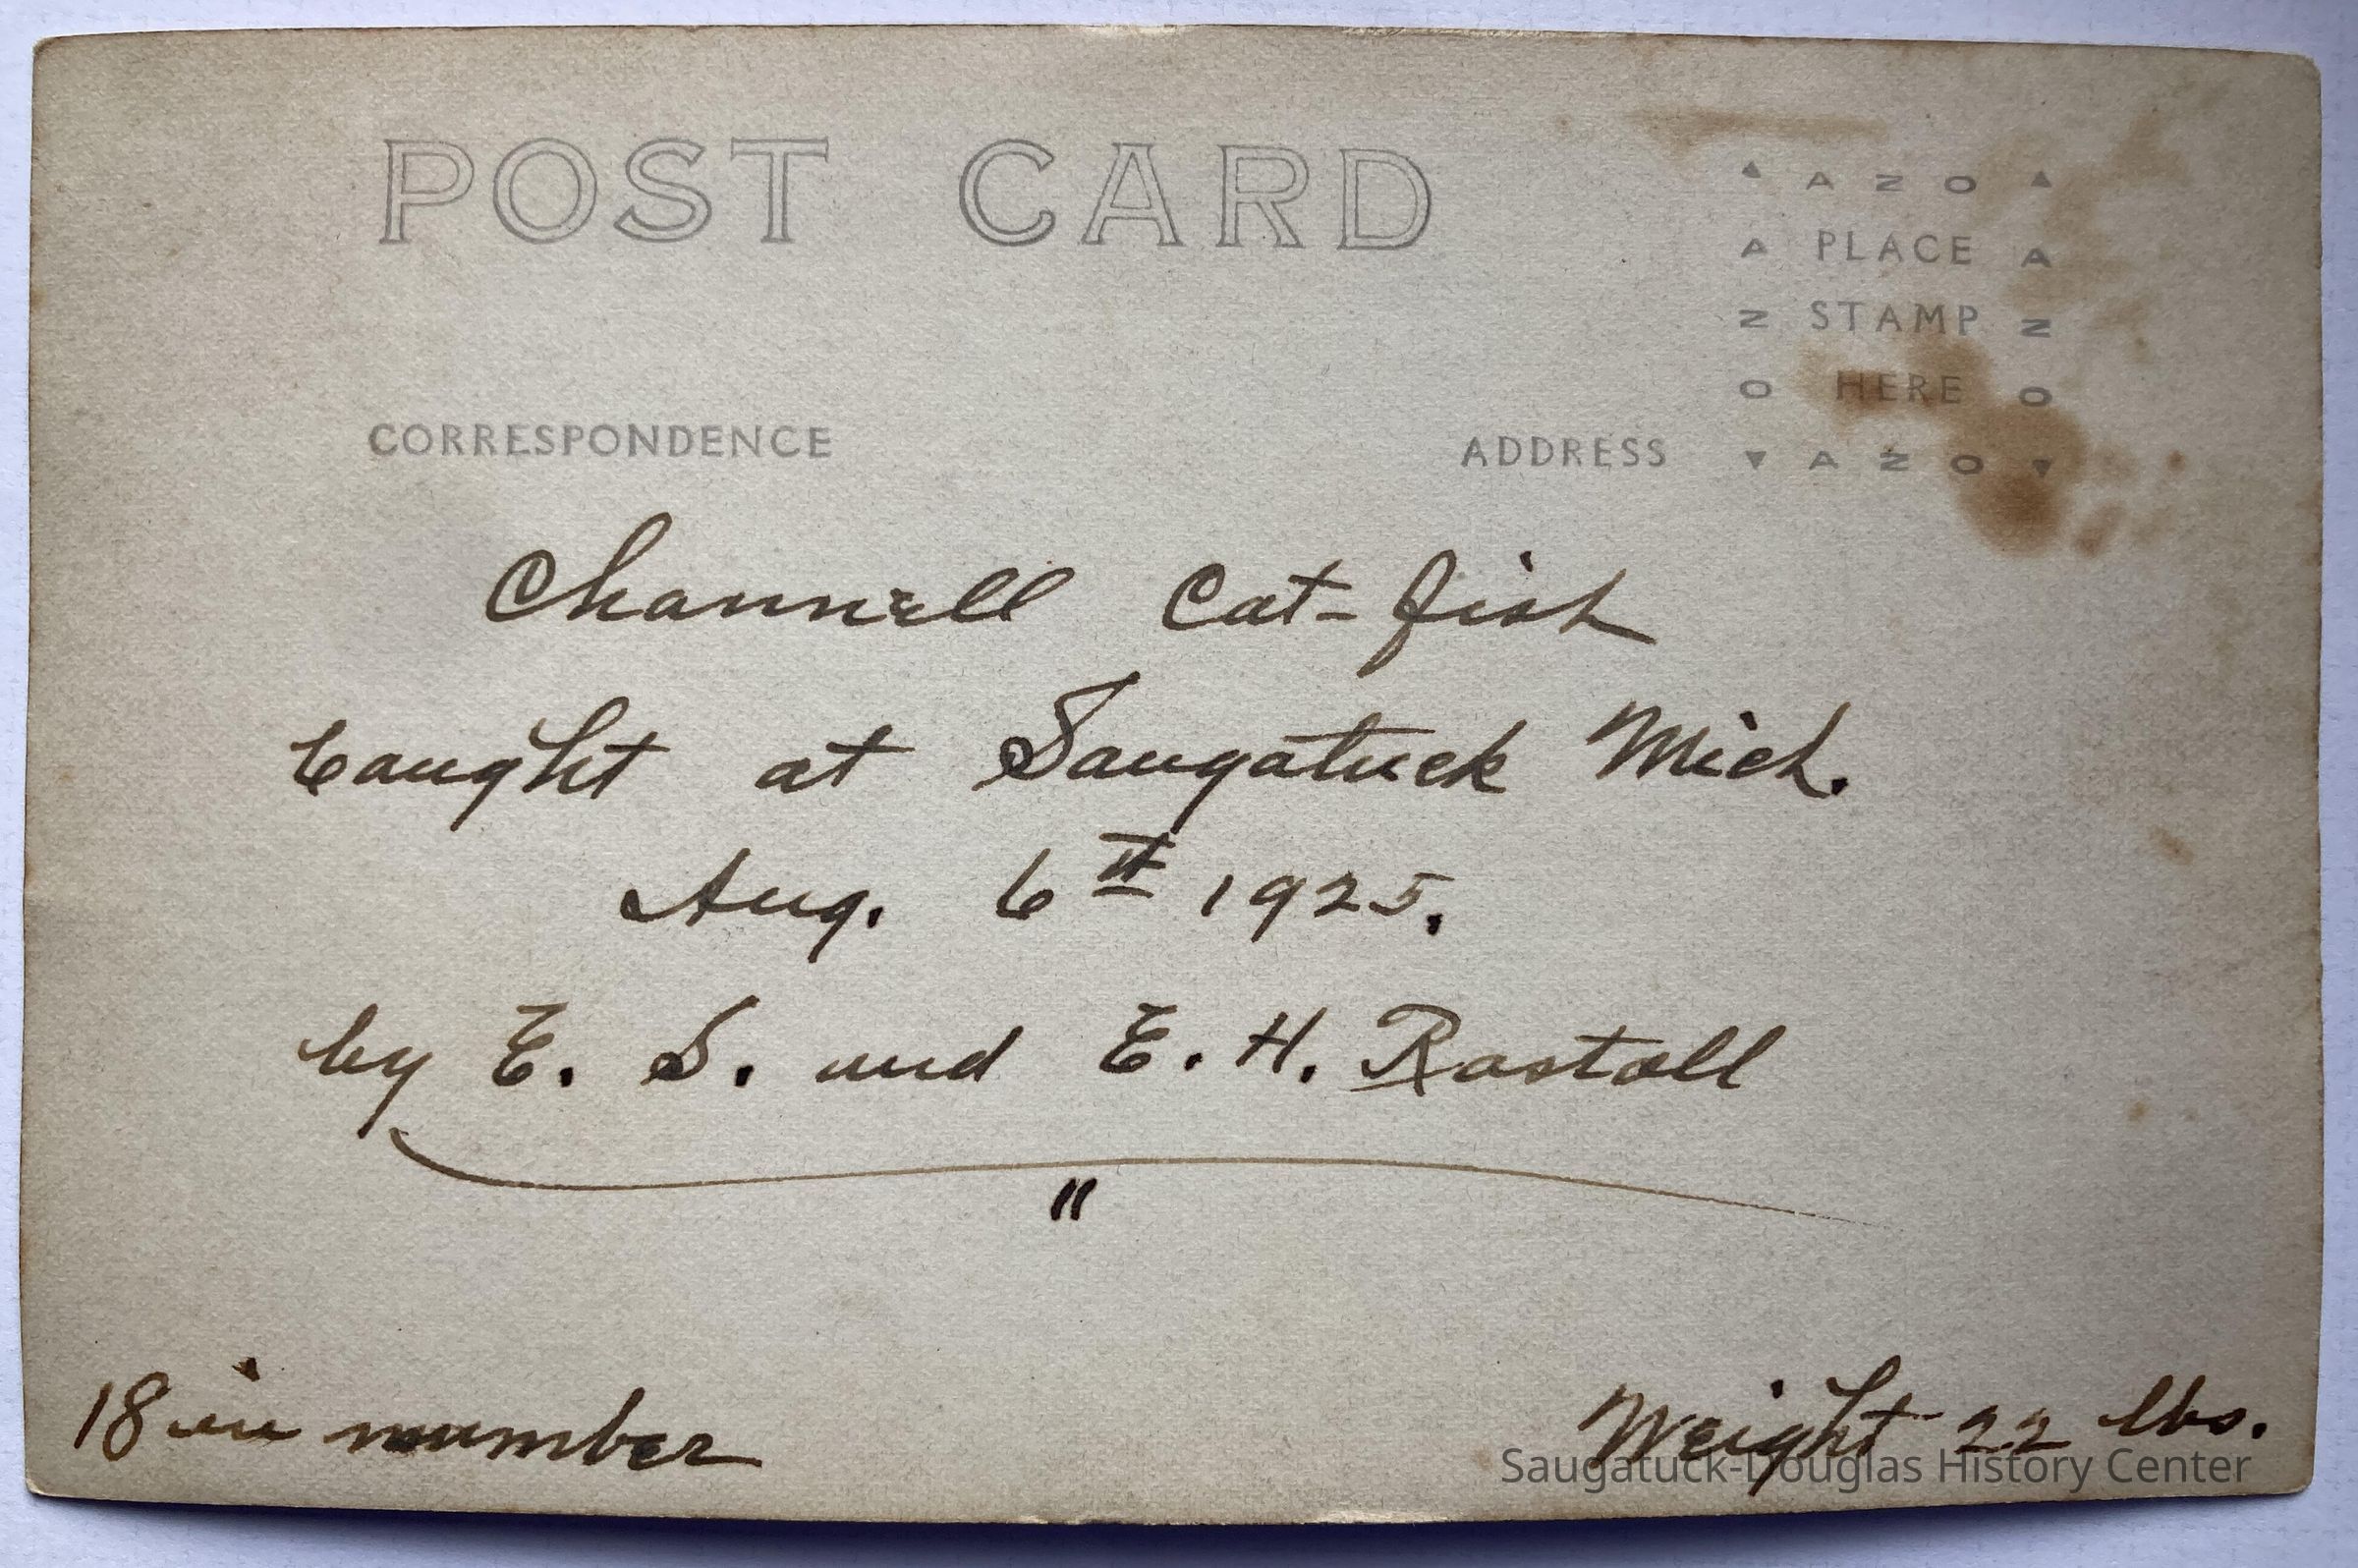 POST CARD
▲ AZO ▲
A PLACE A
Z STAMP Z
O HERE O
▼ AZO ▼
CORRESPONDENCE
ADDRESS
Channell Cat-fish
Caught at Saugatuck Mich.
Aug. 6th 1925.
by E. S. and E. H. Rastall
"
18 in number
Weight 22 lbs.
Saugatuck-Douglas History Center